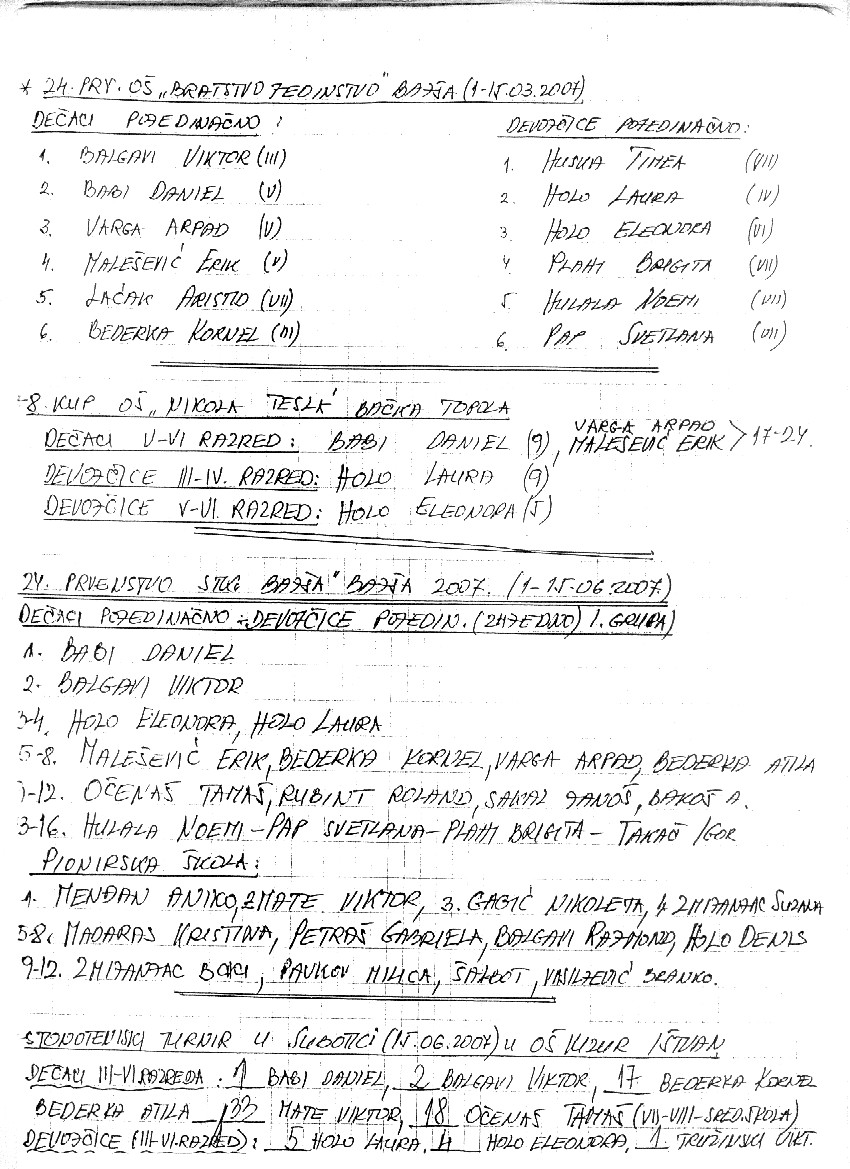 * 24. PRV. OŠ „BRATSTVO JEDINSTVO" BAJŠA (1-15.03.2007)
DEČACI POJEDINAČNO:
1. BALGAVI VIKTOR (III)
2. BABI DANIEL (V)
3. VARGA ARPAD (V)
4. MALEŠEVIĆ ERIK (V)
5. LAČAK ARISTID (VII)
6. BEDERKA KORNEL (III)
DEVOJČICE POJEDINAČNO:
1. HUSKA TIMEA (VII)
2. HOLO LAURA (IV)
3. HOLO ELEONORA (VI)
4. PLAHI BRIGITA (VII)
5. HULALA NOEMI (VII)
6. PAP SVETLANA (VII)
-8. KUP OŠ „NIKOLA TESLA" BAČKA TOPOLA
DEČACI V-VI RAZRED: BABI DANIEL (9), VARGA ARPAD MALEŠEVIĆ ERIK > 17-24.
DEVOJČICE III-IV. RAZRED: HOLO LAURA (9)
DEVOJČICE V-VI. RAZRED: HOLO ELEONORA (5)
24. PRVENSTVO STKG BAJŠA" BAJŠA 2007. (1-15.06.2007)
DEČACI POJEDINAČNO - DEVOJČICE POJEDIN. (ZAJEDNO) 1. GRUPA)
1. BABI DANIEL
2. BALGAVI VIKTOR
3-4. HOLO ELEONORA, HOLO LAURA
5-8. MALEŠEVIĆ ERIK, BEDERKA KORNEL, VARGA ARPAD, BEDERKA ATILA
9-12. OČENAŠ TAMAŠ, RUBINT ROLAND, SAKAL JANOŠ, BAKOŠ A.
3-16. HULALA NOEMI - PAP SVETLANA - PLAHI BRIGITA - TAKAČ IGOR
PIONIRSKA ŠKOLA:
1. MENĐAN ANIKO, 2 MATE VIKTOR, 3. GAGIĆ NIKOLETA, 4. ZMIJANJAC SUZANA
5-8. MADARAS KRISTINA, PETRAŠ GABRIELA, BALGAVI RAJMOND, HOLO DENIS
9-12. ZMIJANJAC BOKI, PAVKOV MILICA, ŠALBOT, VASILJEVIĆ BRANKO.
STONOTENISKI TURNIR U SUBOTICI (15.06.2007) U OŠ KIZUR IŠTVAN
DEČACI III-VI RAZREDA: 1 BABI DANIEL, 2 BALGAVI VIKTOR, 17 BEDERKA KORNEL
BEDERKA ATILA, 33 MATE VIKTOR, 18 OČENAŠ TAMAŠ (VII-VIII-SRED.ŠKOLA)
DEVOJČICE (III-VI.RAZRED): 5 HOLO LAURA, 4 HOLO ELEONORA, 1. TRUŽINSKI VIKT.